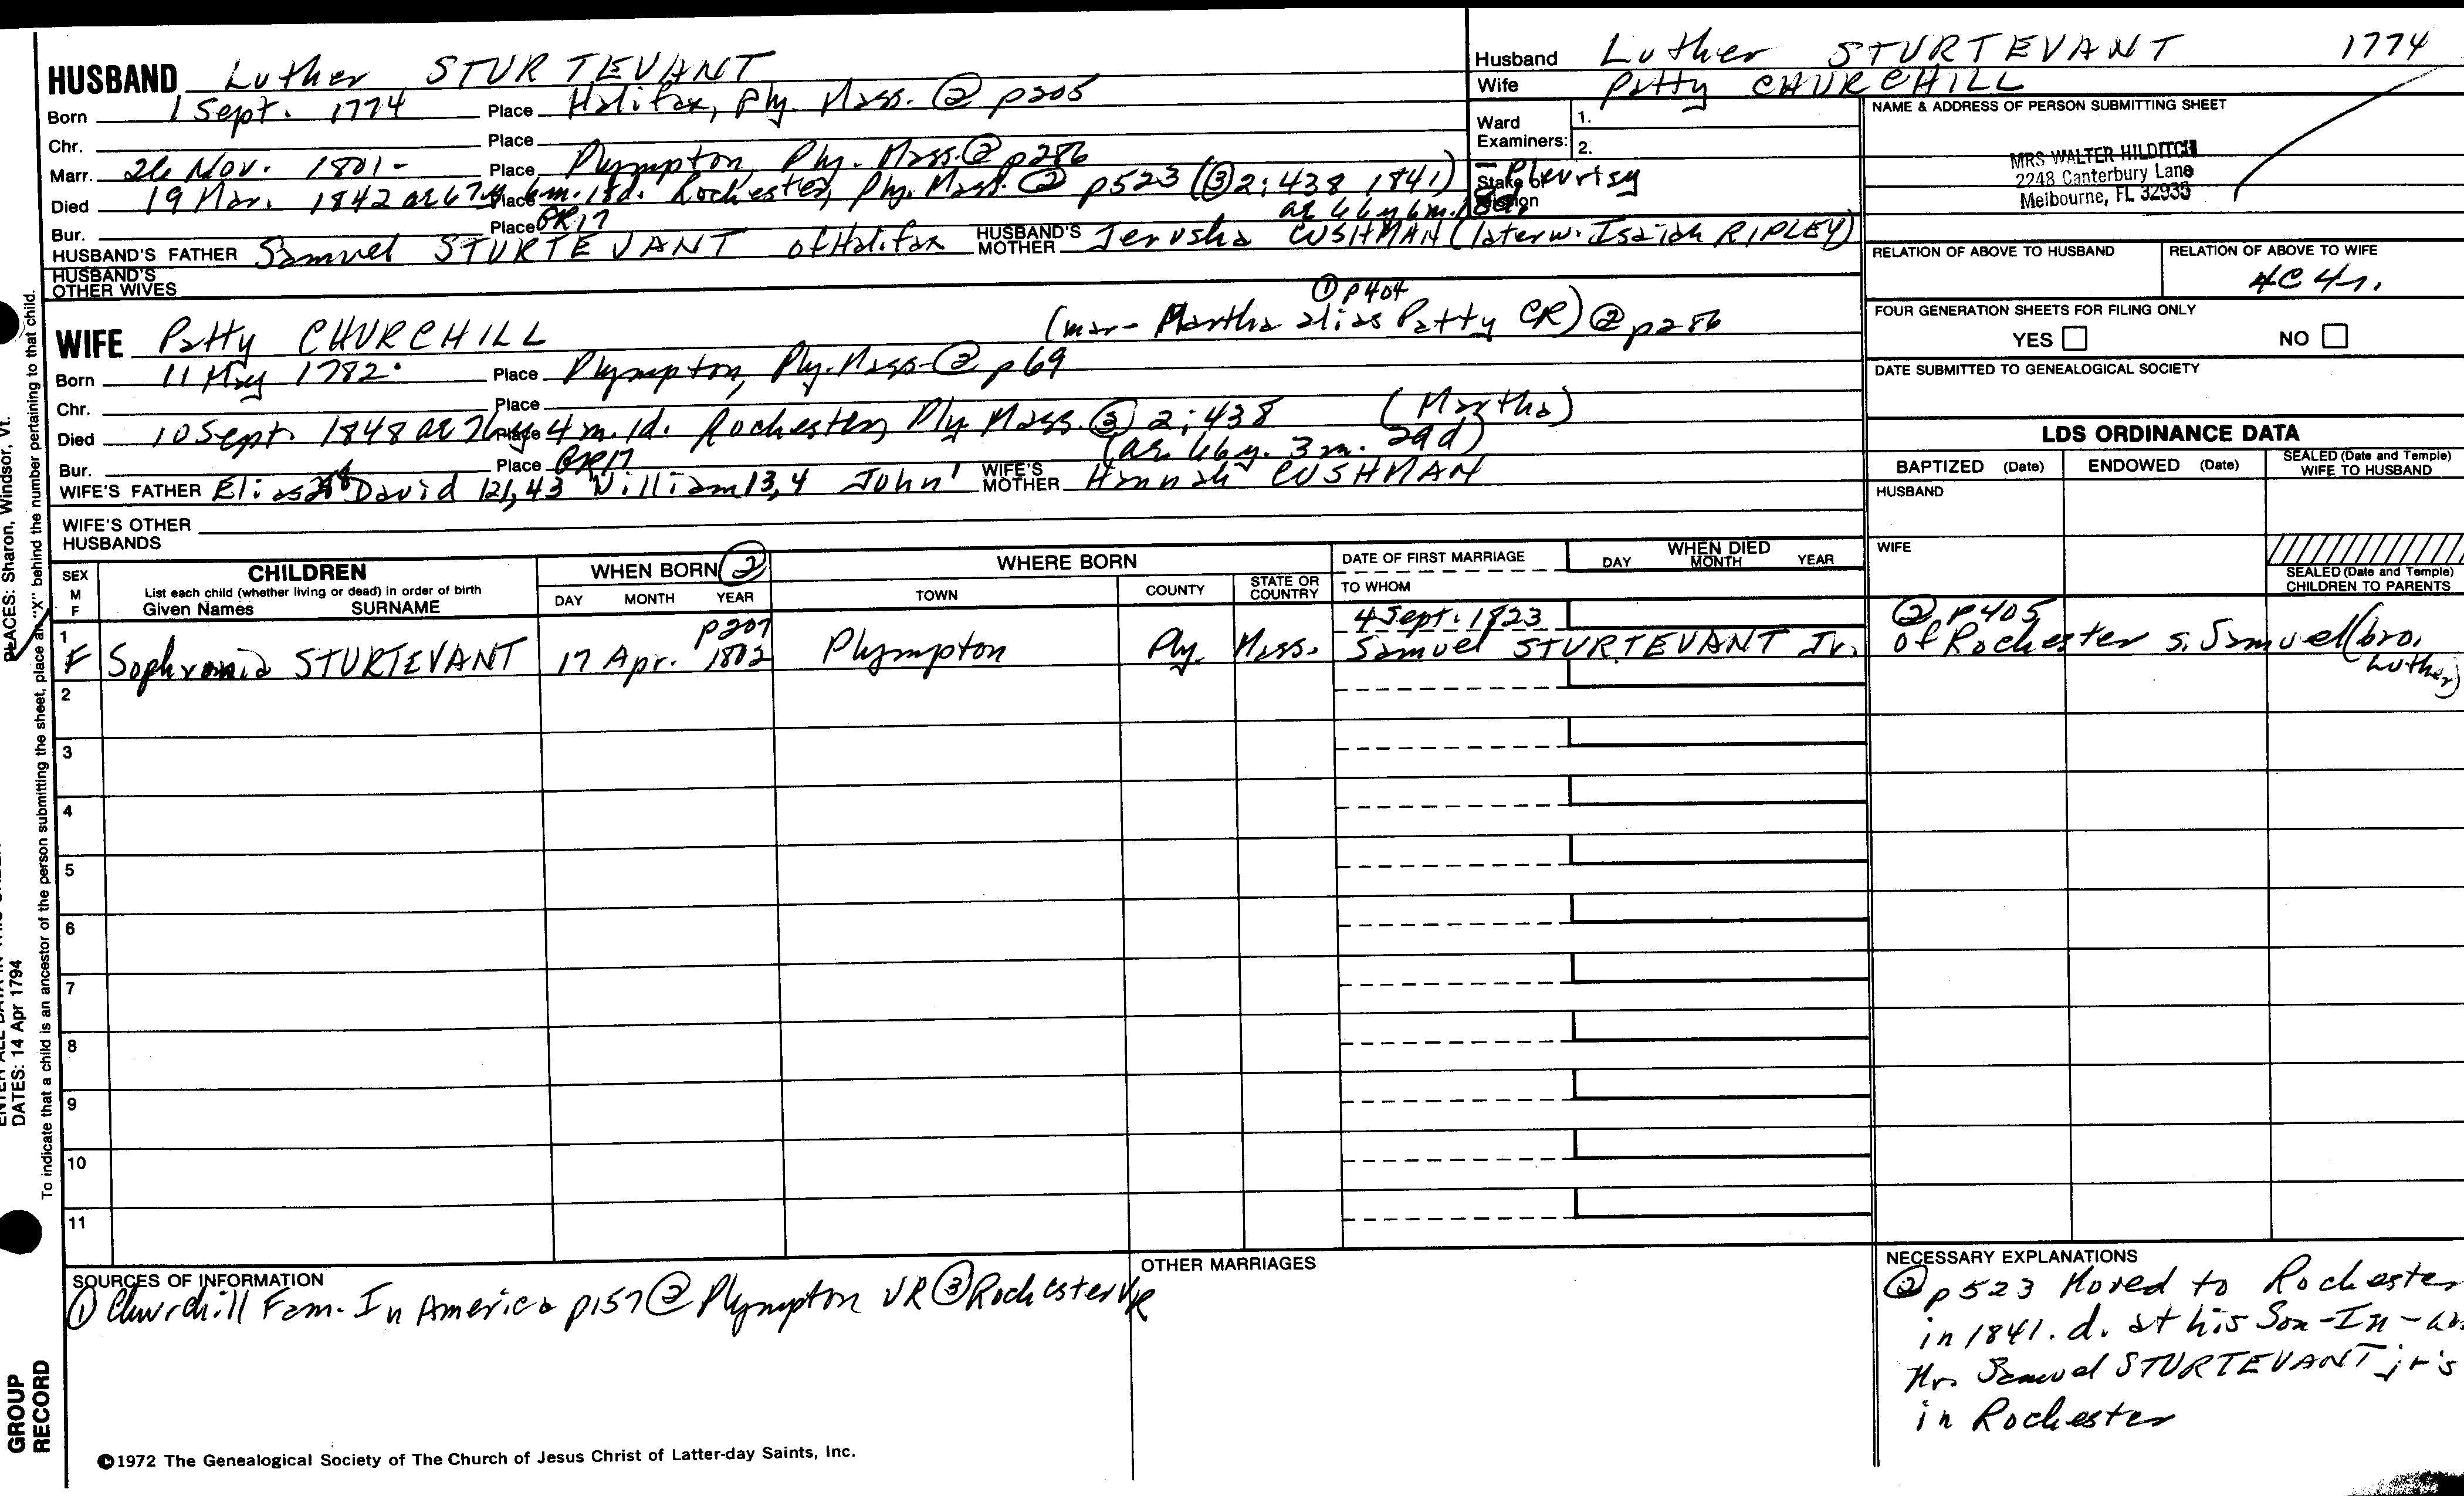 HUSBAND Luther STURTEVANT
Born 1 Sept. 1774 Place Halifax, Ply. Mass. ② p205
Chr. Place
Marr. 26 Nov. 1801- Place Plympton, Ply. Mass. ② p286
Died 19 Mar. 1842 ae 67y 6m. 18d. Place Rochester, Ply. Mass. ② p523 (③ 2:438 1841) Pleurisy
ae 66y 6m. 18d.
Bur. Place GR17
HUSBAND'S FATHER Samuel STURTEVANT of Halifax HUSBAND'S MOTHER Jerusha CUSHMAN (later w. Isaiah RIPLEY)
HUSBAND'S OTHER WIVES
① p404
WIFE Patty CHURCHILL (mar- Martha alias Patty CR) ② p286
Born 11 May 1782. Place Plympton, Ply. Mass. ② p69
Chr. Place
Died 10 Sept. 1848 ae 76y 4m. 1d. Place Rochester, Ply Mass. ③ 2:438 (Martha)
(ae. 66y. 3m. 29d)
Bur. Place GR17
WIFE'S FATHER Elias David 121,43 William 13,4 John' WIFE'S MOTHER Hannah CUSHMAN
WIFE'S OTHER HUSBANDS
Husband Luther STURTEVANT 1774
Wife Patty CHURCHILL
Ward Examiners: 1.
2.
Stake or Mission
NAME & ADDRESS OF PERSON SUBMITTING SHEET
MRS WALTER HILDITCH
2248 Canterbury Lane
Melbourne, FL 32935
RELATION OF ABOVE TO HUSBAND RELATION OF ABOVE TO WIFE
4C 4r.
FOUR GENERATION SHEETS FOR FILING ONLY
YES NO
DATE SUBMITTED TO GENEALOGICAL SOCIETY
LDS ORDINANCE DATA
BAPTIZED (Date) ENDOWED (Date) SEALED (Date and Temple) WIFE TO HUSBAND
HUSBAND
WIFE
SEALED (Date and Temple) CHILDREN TO PARENTS
SEX M F
CHILDREN
List each child (whether living or dead) in order of birth
Given Names SURNAME
WHEN BORN ②
DAY MONTH YEAR
WHERE BORN
TOWN COUNTY STATE OR COUNTRY
DATE OF FIRST MARRIAGE
TO WHOM
WHEN DIED
DAY MONTH YEAR
1 p207 4 Sept. 1823 ② p405
F Sophronia STURTEVANT 17 Apr. 1802 Plympton Ply. Mass. Samuel STURTEVANT Jr. of Rochester s. Samuel (bro. Luther)
2
3
4
5
6
7
8
9
10
11
SOURCES OF INFORMATION
① Churchill Fam. In America p157 ② Plympton VR ③ Rochester VR
OTHER MARRIAGES
NECESSARY EXPLANATIONS
② p523 Moved to Rochester
in 1841. d. at his Son-In-
Mr. Samuel STURTEVANT jr's
in Rochester
©1972 The Genealogical Society of The Church of Jesus Christ of Latter-day Saints, Inc.
PLACES: Sharon, Windsor, Vt.
DATES: 14 Apr 1794
To indicate that a child is an ancestor of the person submitting the sheet, place an "X" behind the number pertaining to that child.
GROUP
RECORD